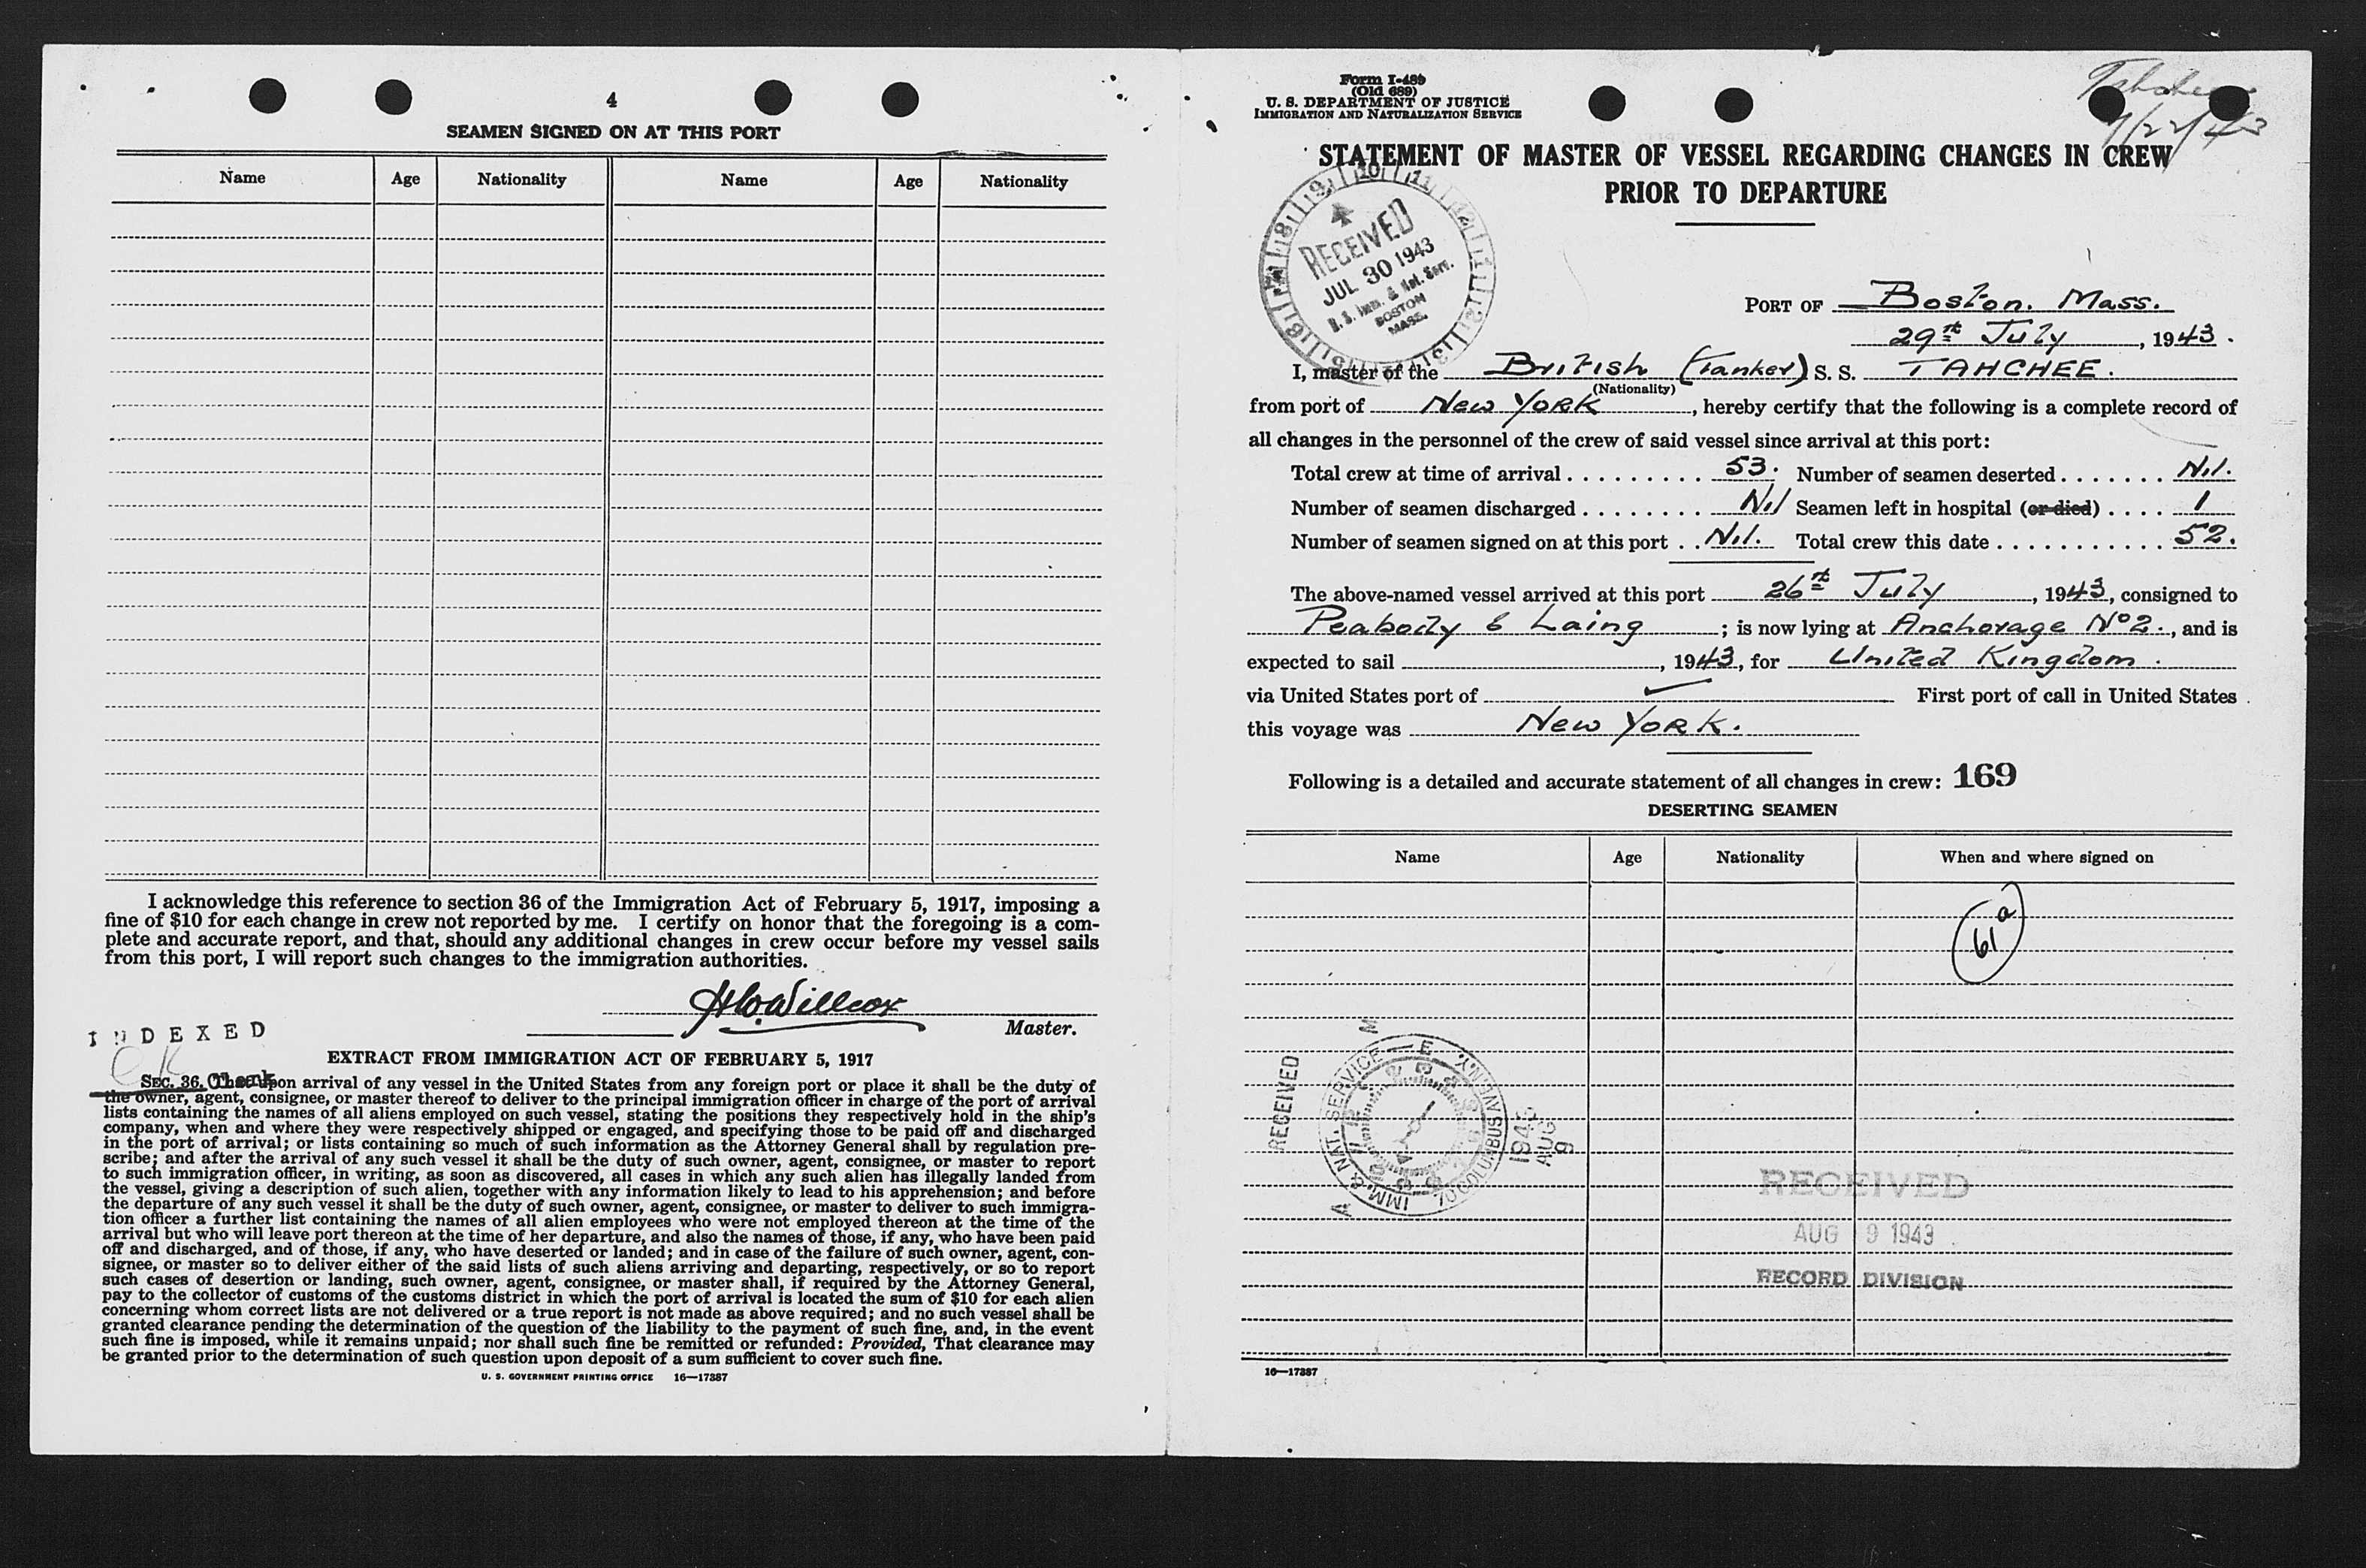 4
SEAMEN SIGNED ON AT THIS PORT
Name Age Nationality Name Age Nationality
I acknowledge this reference to section 36 of the Immigration Act of February 5, 1917, imposing a
fine of $10 for each change in crew not reported by me. I certify on honor that the foregoing is a com-
plete and accurate report, and that, should any additional changes in crew occur before my vessel sails
from this port, I will report such changes to the immigration authorities.
Willcox
Master.
INDEXED
OK
EXTRACT FROM IMMIGRATION ACT OF FEBRUARY 5, 1917
SEC. 36. That upon arrival of any vessel in the United States from any foreign port or place it shall be the duty of
the owner, agent, consignee, or master thereof to deliver to the principal immigration officer in charge of the port of arrival
lists containing the names of all aliens employed on such vessel, stating the positions they respectively hold in the ship's
company, when and where they were respectively shipped or engaged, and specifying those to be paid off and discharged
in the port of arrival; or lists containing so much of such information as the Attorney General shall by regulation pre-
scribe; and after the arrival of any such vessel it shall be the duty of such owner, agent, consignee, or master to report
to such immigration officer, in writing, as soon as discovered, all cases in which any such alien has illegally landed from
the vessel, giving a description of such alien, together with any information likely to lead to his apprehension; and before
the departure of any such vessel it shall be the duty of such owner, agent, consignee, or master to deliver to such immigra-
tion officer a further list containing the names of all alien employees who were not employed thereon at the time of the
arrival but who will leave port thereon at the time of her departure, and also the names of those, if any, who have been paid
off and discharged, and of those, if any, who have deserted or landed; and in case of the failure of such owner, agent, con-
signee, or master so to deliver either of the said lists of such aliens arriving and departing, respectively, or so to report
such cases of desertion or landing, such owner, agent, consignee, or master shall, if required by the Attorney General,
pay to the collector of customs of the customs district in which the port of arrival is located the sum of $10 for each alien
concerning whom correct lists are not delivered or a true report is not made as above required; and no such vessel shall be
granted clearance pending the determination of the question of the liability to the payment of such fine, and, in the event
such fine is imposed, while it remains unpaid; nor shall such fine be remitted or refunded: Provided, That clearance may
be granted prior to the determination of such question upon deposit of a sum sufficient to cover such fine.
U. S. GOVERNMENT PRINTING OFFICE 16—17387
Form I-489
(Old 689)
U. S. DEPARTMENT OF JUSTICE
IMMIGRATION AND NATURALIZATION SERVICE
7/22/43
STATEMENT OF MASTER OF VESSEL REGARDING CHANGES IN CREW
PRIOR TO DEPARTURE
RECEIVED
JUL 30 1943
U.S. Imm. & Nat. Serv.
BOSTON
MASS.
PORT OF Boston. Mass.
29th July, 1943.
I, master of the British (Tanker) S. S. TAHCHEE.
(Nationality)
from port of New YORK, hereby certify that the following is a complete record of
all changes in the personnel of the crew of said vessel since arrival at this port:
Total crew at time of arrival 53. Number of seamen deserted Nil.
Number of seamen discharged Nil Seamen left in hospital (or died) 1
Number of seamen signed on at this port Nil. Total crew this date 52.
The above-named vessel arrived at this port 26th July, 1943, consigned to
Peabody & Laing; is now lying at Anchorage No 2., and is
expected to sail , 1943, for United Kingdom.
via United States port of First port of call in United States
this voyage was New YORK.
Following is a detailed and accurate statement of all changes in crew: 169
DESERTING SEAMEN
Name Age Nationality When and where signed on
61 a
RECEIVED
IMM. & NAT. SERVICE
70 COLUMBUS AVE. N.Y.
1943
AUG
9
RECEIVED
AUG 9 1943
RECORD DIVISION
16—17387